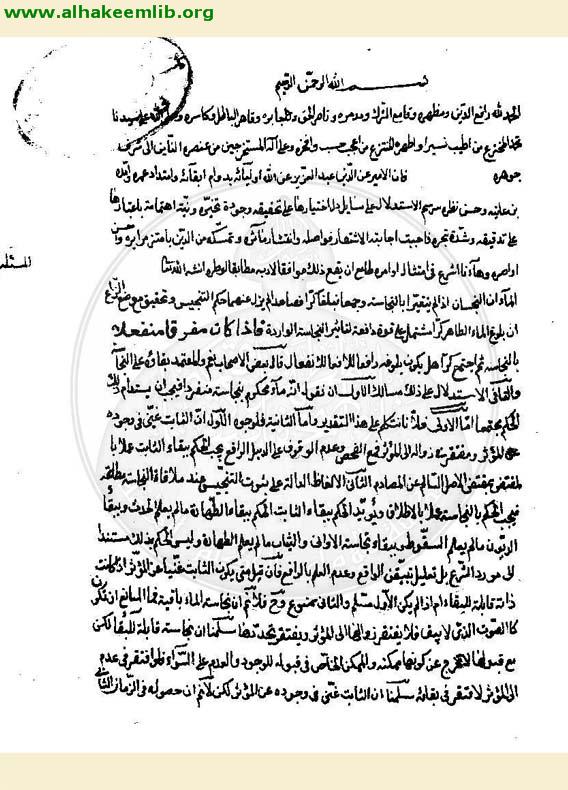 www.alhakeemlib.org
بسم الله الرحمن الرحيم
الحمد لله رافع الدين ومظهره وقامع الشرك ومدمره وناصر الحق وقاهر الباطل وكاسره وصلى الله على سيدنا
محمد المخترع من اطيب نسبا واطهره المنتزع من حسب وافخره وعلى آله المستخرجين من عنصره النائين الى شرف
جوهره فان الامير عز الدين عبد العزيز عن الله اوليائه بدوام ابقائه وامتداد عمره
من عنايته وحسن نظره سرسم الاستدلال على مسايل دل اختيارها على تحقيقه وجودة تخيره اهتمامه باعتبارها
على تدقيقه وشدة تبحره فاجبت اجابته لاشتهار فواصله وانتشار مآثره وتمسكه من الدين
اواصره وها انا اشرع في امتثال اوامره طامع ان يقع ذلك موافقا لادبه مطابقا لوطره انشاء الله تعالى
المآء ان النجسان اذا لم يتغيرا بالنجاسة وجمعا فبلغا كرا فصاعدا لم يزل عنهما حكم التنجيس وتحقيق موضع النزاع
ان بلوغ الماء الطاهر كرا مشتمل على قوة دافعة لتاثير النجاسة الواردة فاذا كان متفرقا منفعلا
بالنجاسة ثم اجتمع كرا هل يكون بلوغه رافعا لانفعال قال بعض الاصحاب نعم والمعتمد بقاؤه على النجاسة
ولنا في الاستدلال على ذلك مسالك الاول ان نقول انه ماء محكوم بنجاسة منفردا فيجب ان يستدام ذلك
الحكم بجمعهما اما الاولى فلانا نتكلم على هذا التقدير واما الثانية فلوجوه الاول ان الثابت غني في وجوده
عن المؤثر ومفتقر في زواله الى المؤثر فمع الفحص وعدم الوقوف على الدليل الرافع يجب الحكم ببقاء الثابت عملا با
لمقتضي بمقتضى الاصل السالم عن المصادم الثاني الالفاظ الدالة على ثبوت التنجيس عند ملاقاة النجاسة مطلقة
فيجب الحكم بالنجاسة عملا بالاطلاق ويؤيد الحكم ببقاء الثابت الحكم ببقاء الطهارة ما لم يعلم الحدث وببقاء
الديون ما لم يعلم السقوط وببقاء نجاسة الاواني والثياب ما لم يعلم الطهارة وليس الحكم بذلك مستندا
الى مورد الشرع بل تعليل بتيقن الواقع وعدم العلم بالرافع فان قيل متى يكون الثابت غنيا عن المؤثر اذا كانت
ذاته قابلة للبقاء ام اذا لم يكن الاول مسلم والثاني ممنوع وح فلا نم ان نجاسة الماء باقية فما المانع ان تكون
كالصوت الذي لا يبقى فلا يفتقر زوالها الى مؤثر ويفتقر تجددها سلمنا ان نجاسته قابلة للبقاء لكن
مع قبولها لا تخرج عن كونها ممكنة والممكن الخاص في قبوله للوجود والعدم على السواء فلو افتقر في عدمه
الى المؤثر لافتقر في بقائه سلمنا ان الثابت غني في وجوده عن المؤثر لكن لا نم ان حصوله في الزمان الثاني